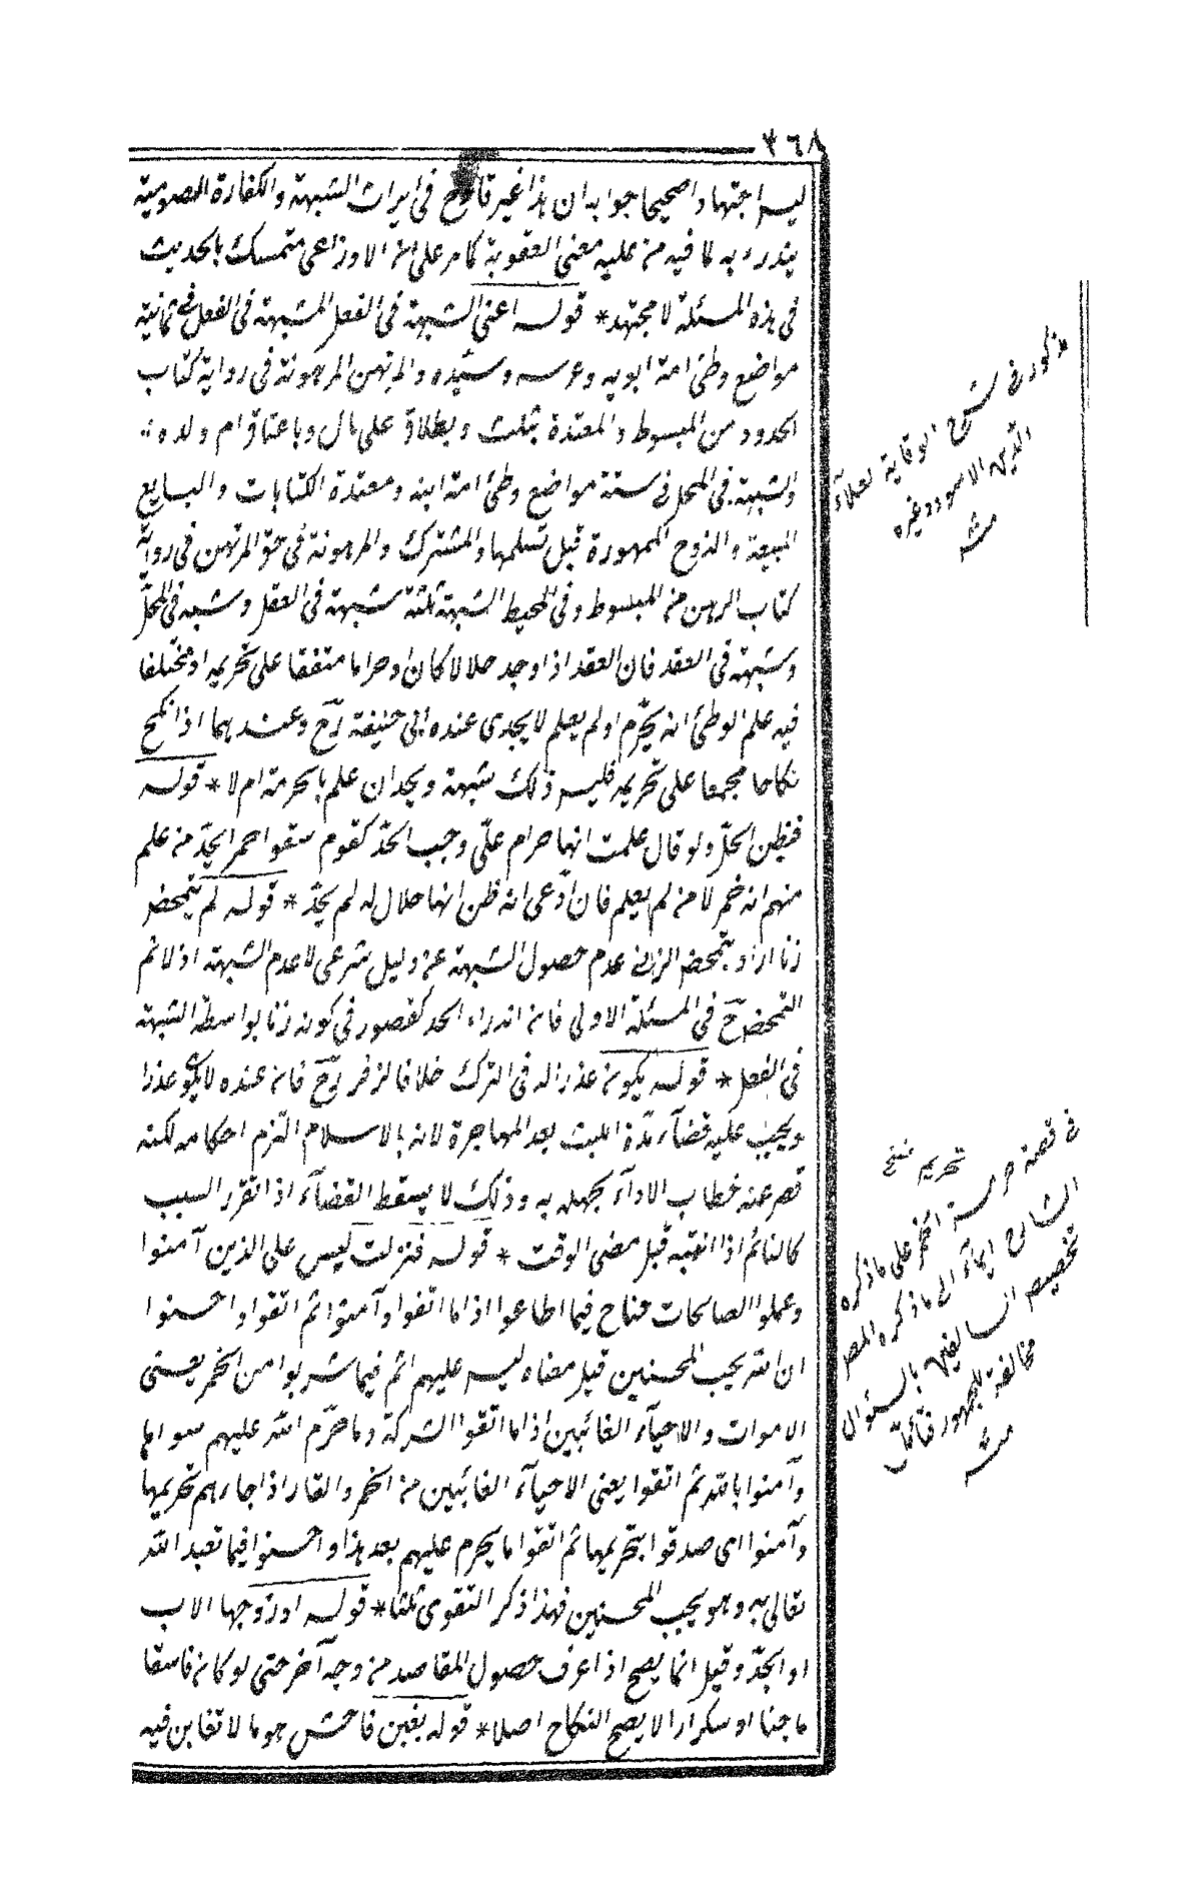 ٣٦٨
ليس اجتهادا صحيحا جوابه ان هذا غير قادح فى ايراث الشبهة والكفارة الصومية
يندرء به لما فيه من عليه معنى العقوبة كما مر على ان الاوزاعى متمسك بالحديث
فى هذه المسئلة لا مجتهد * قوله اعنى الشبهة فى الفعل الشبهة فى الفعل فى ثمانية
مواضع وطئ امة ابويه وعرسه وسيّده والمرتهن المرهونة فى رواية كتاب
الحدود من المبسوط والمعتدة بثلث وبطلاق على مال وباعتاق ام ولده
والشبهة فى المحل فى ستة مواضع وطئ امة ابنه ومعتدة الكنايات والبايع
المبيعة والزوج الممهورة قبل تسلمها والمشترك والمرهونة فى حق المرتهن فى رواية
كتاب الرهن من المبسوط وفى المحيط الشبهة ثلثة شبهة فى العقل وشبهه فى المحلّ
وشبهة فى العقد فان العقد اذا وجد حلالا كان او حراما متفقا على تحريمه او مختلفا
فيه علم الوطئ انه يحرّم او لم يعلم لا يجدى عنده ابى حنيفة رح وعندهما اذا نكح
نكاحا مجمعا على تحريمه فليس ذلك شبهة ويحد ان علم بالحرمة ام لا * قوله
فظن الحلّ ولو قال علمت انها حرام علّى وجب الحدّ كقوم سقوا خمر ايحدّ من علم
منهم انه خمر لا من لم يعلم فان ادّعى انه ظن انها حلال له لم يحدّ * قوله لم يتمحض
زنا اراد بتمحض الزنى عدم حصول الشبهة عن دليل شرعى لا عدم الشبهة اذ لا تم
التمحض ح فى المسئلة الاولى فان اندراء الحد كقصور فى كونه زنا بواسطة الشبهة
فى الفعل * قوله يكون عذرا له فى الترك خلافا لزفر رح فان عنده لا يكون عذرا
ويجب عليه قضآء مدّة البث بعد المهاجرة لانه بالاسلام التزم احكامه لكنه
قصر عنه خطاب الادآء بجهله به وذلك لا يسقط القضآء اذا تقرر السبب
كالنائم اذا انتبه قبل مضى الوقت * قوله فنزلت ليس على الذين آمنوا
وعملوا الصالحات جناح فيما اطاعوا اذا ما اتقوا وآمنوا ثم اتقوا واحسنوا
ان الله يحب المحسنين قيل معناه ليس عليهم اثم فيما شربوا من الخمر يعنى
الاموات والاحيآء الغائبين اذا ما اتقوا الشركة وما حرّم الله عليهم سواها
وآمنوا بالله ثم اتقوا يعنى الاحيآء الغائبين من الخمر والقمار اذا جاءهم تحريمها
وآمنوا اى صدقوا بتحريمها ثم اتقوا ما يحرم عليهم بعد هذا واحسنوا فيما تعبد الله
تعالى به وهو يحب المحسنين فهذا ذكر التقوى ثلثا * قوله او زوجها الاب
او الجدّ وقيل انما يصح اذا عرف حصول المقاصد من وجه آخر حتى لو كان فاسقا
ماجنا او سكرارا لا يصح النكاح اصلا * قوله بغبن فاحش هو ما لا تغابن فيه
مذكور فى شرح الوقاية لعلآء
الدّين الاسود وغيره
منه
فى قصة حرمة الخمر على ما ذكره
تحريم نسخ
الشارح ايمآء الى ما ذكره المص
تخصيص السالفين بالسئوال
مخالفة للجمهور فتأمّل
منه